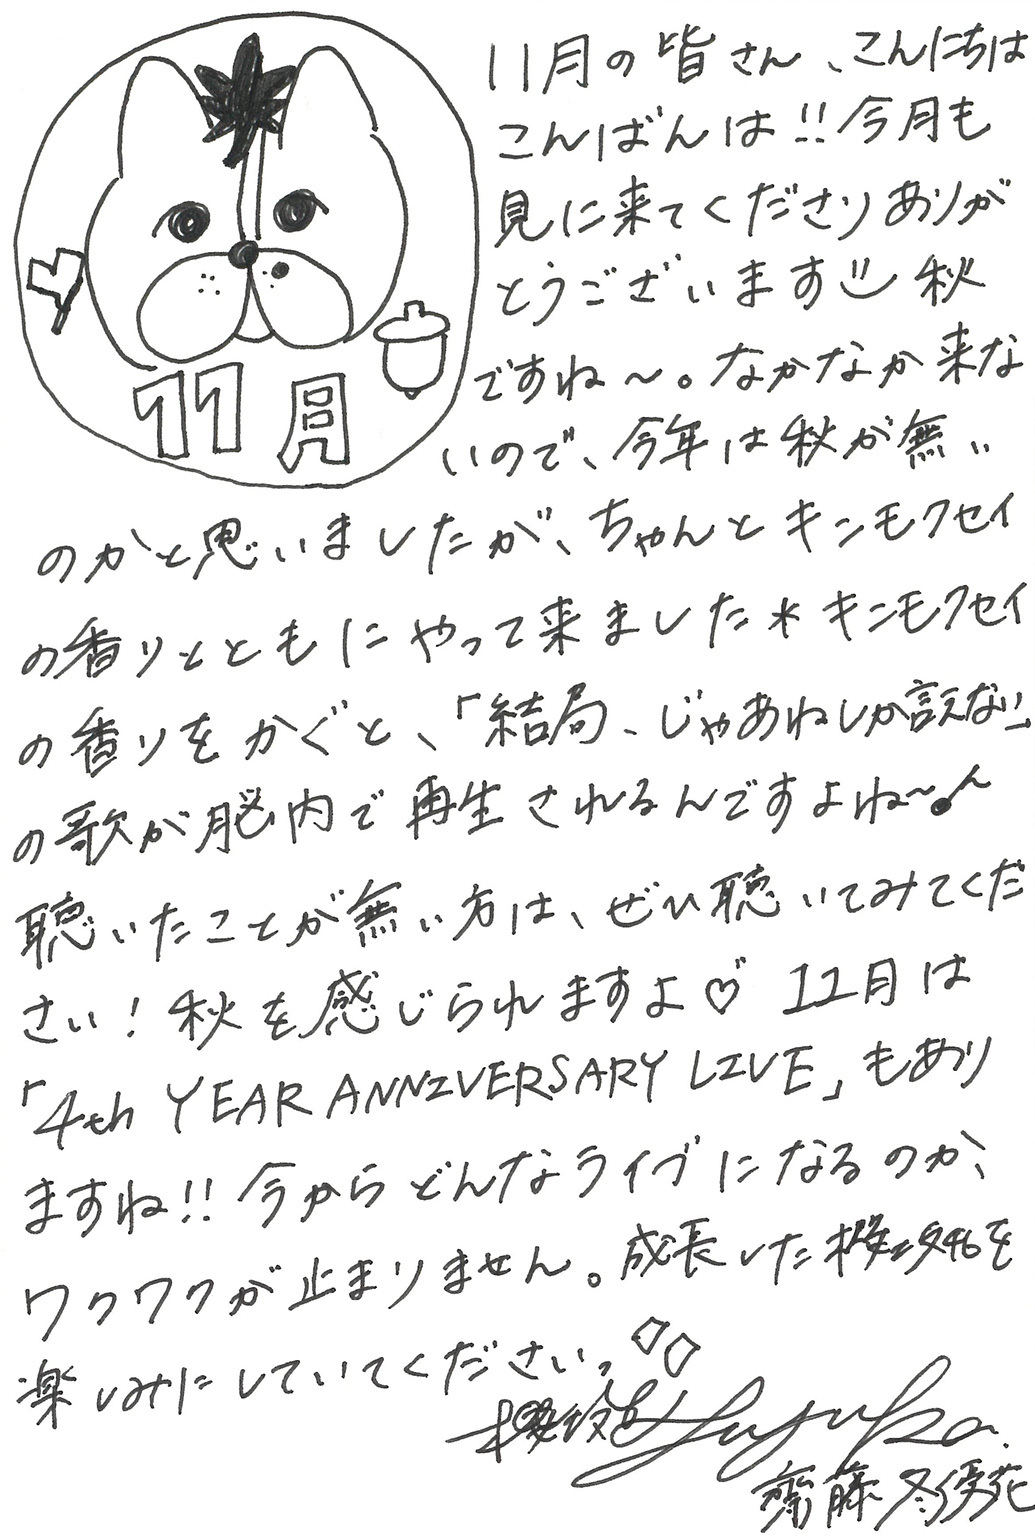 11月
11月の皆さん、こんにちは
こんばんは!!今月も
見に来てくださりありが
とうございます 秋
ですね〜。なかなか来な
いので、今年は秋が無い
のかと思いましたが、ちゃんとキンモクセイ
の香りとともにやって来ました＊キンモクセイ
の香りをかぐと、「結局、じゃあねしか言えない」
の歌が脳内で再生されるんですよね〜♪
聴いたことが無い方は、ぜひ聴いてみてくだ
さい！秋を感じられますよ♡ 12月は
「4th YEAR ANNIVERSARY LIVE」もあり
ますね!!今からどんなライブになるのか、
ワクワクが止まりません。成長した櫻坂46を
楽しみにしていてください。
櫻坂46 Fuyuka.
齋藤冬優花